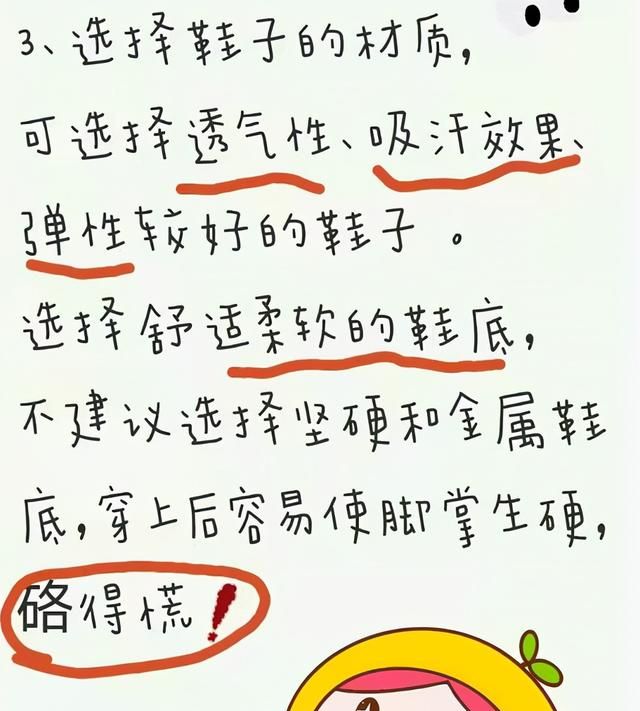 3、选择鞋子的材质,
可选择透气性、吸汗效果、
弹性较好的鞋子。
选择舒适柔软的鞋底,
不建议选择坚硬和金属鞋
底,穿上后容易使脚掌生硬,
硌得慌!